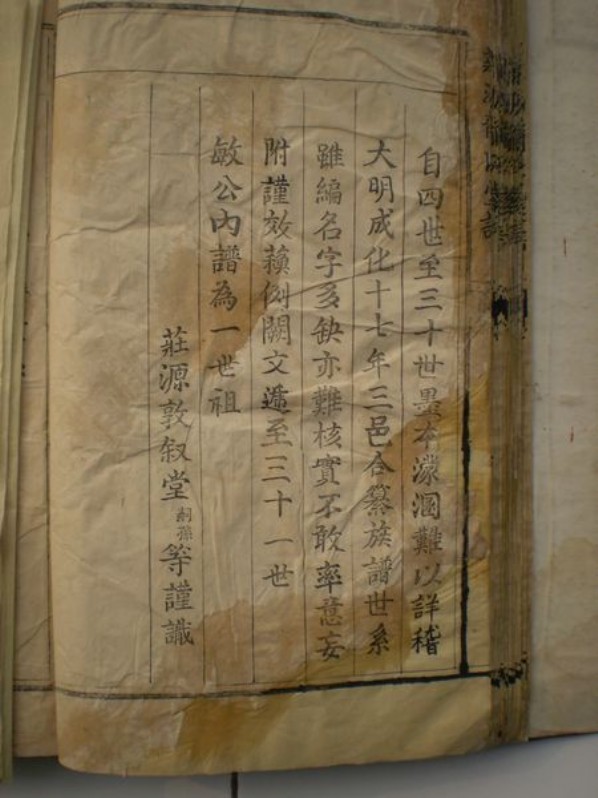 自四世至三十世墨本濛溷難以詳稽
大明成化十七年三邑合纂族譜世系
雖編名字多缺亦難核實不敢率意妄
附謹效蘋例闕文遞至三十一世
敏公內譜為一世祖
莊源敦叙堂嗣孫等謹識